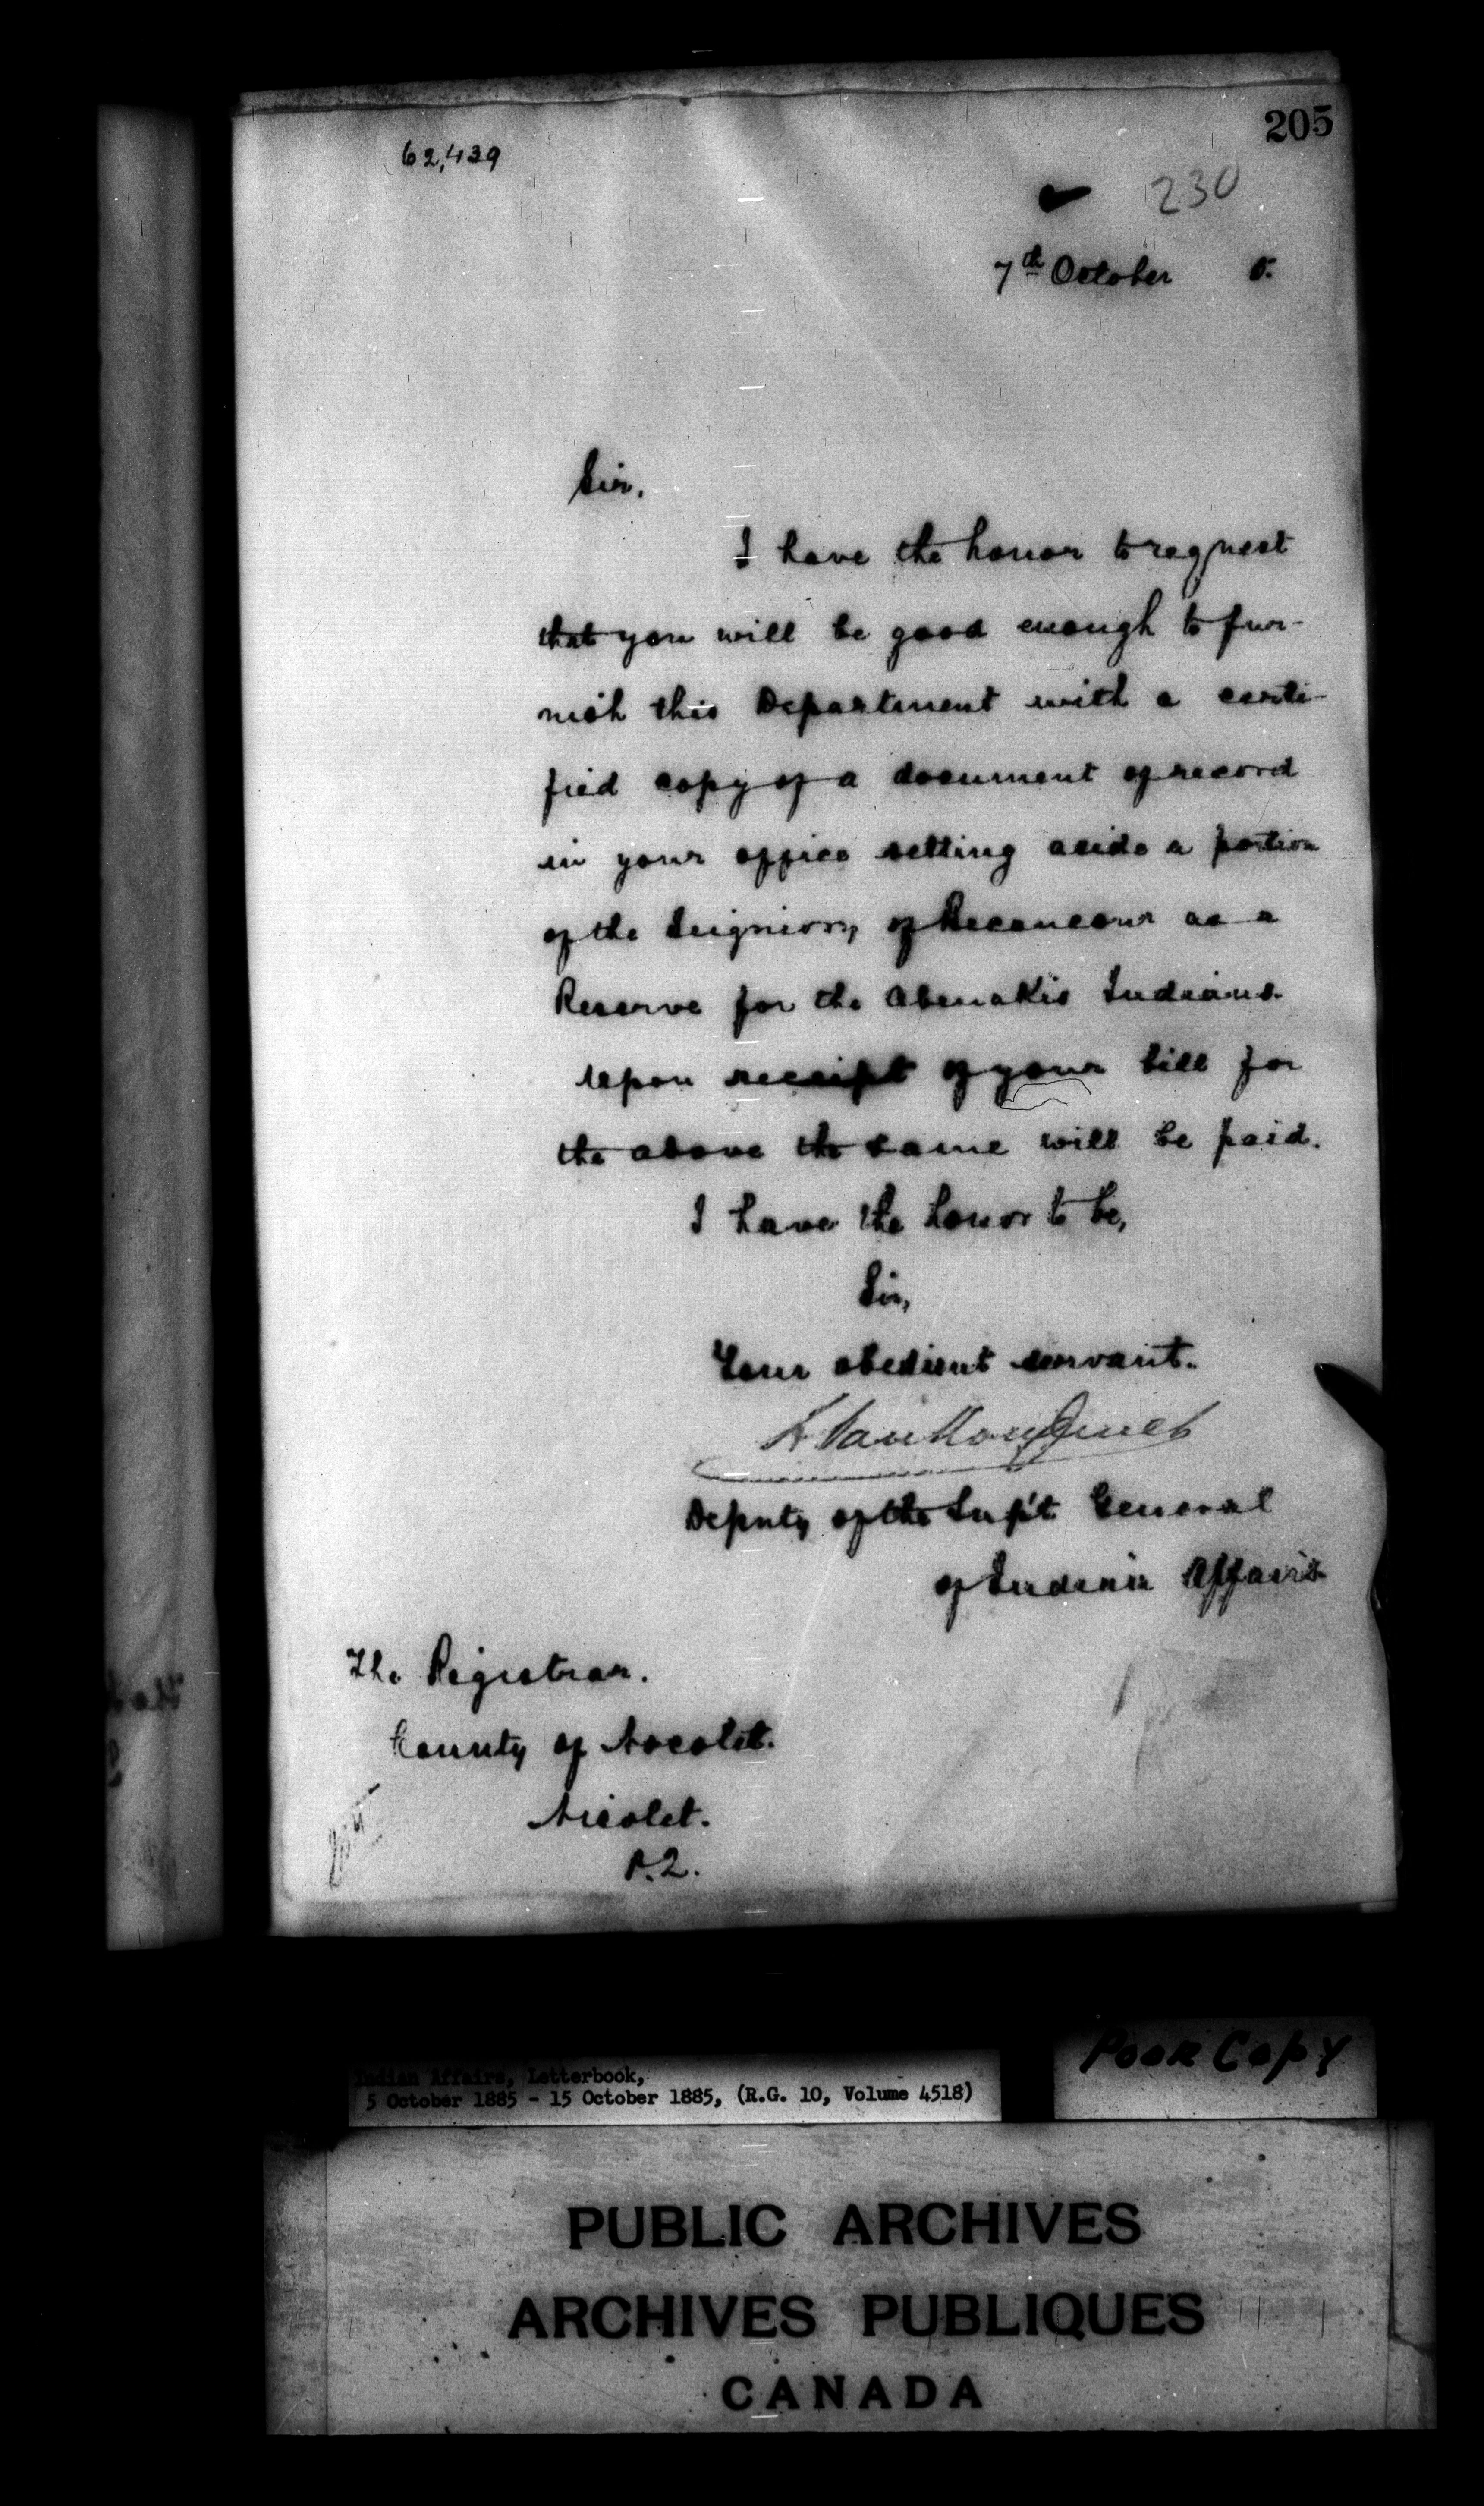 205
62,439
230
7th October 5.
Sir,
I have the honor to request
that you will be good enough to fur-
nish this Department with a certi-
fied copy of a document of record
in your office setting aside a portion
of the Seigniory of Becancour as a
Reserve for the Abenakis Indians.
Upon receipt of your bill for
the above the same will be paid.
I have the honor to be,
Sir,
Your obedient servant.
L VanKoughnet
Deputy of the Sup't General
of Indian Affairs
The Registrar.
County of Nicolet.
Nicolet.
P.Q.
Indian Affairs, Letterbook,
5 October 1885 - 15 October 1885, (R.G. 10, Volume 4518)
Poor Copy
PUBLIC ARCHIVES
ARCHIVES PUBLIQUES
CANADA